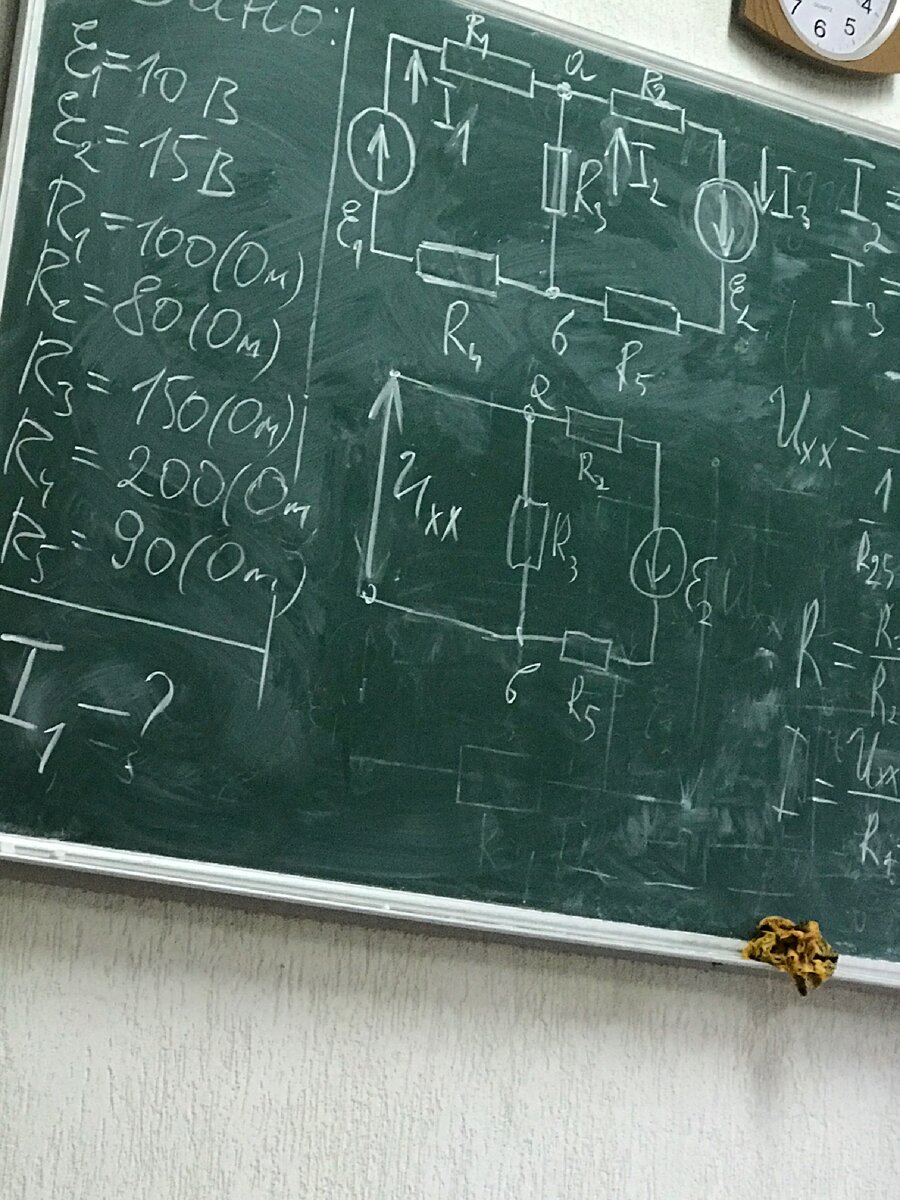 Дано:
Ɛ₁=10 В
Ɛ₂=15В
R₁=100(Ом)
R₂=80(Ом)
R₃=150(Ом)
R₄=200(Ом
R₅=90(Ом)
I₁ – ?
R₁
a
R₂
I₁
R₃
I₂
I₃
Ɛ₁
Ɛ₂
R₄
б
R₅
a
R₂
Uxx
R₃
Ɛ₂
б
R₅
I₂=
I₃=
Uxx=
1
R₂₅
R=
I=
Uxx
7
6
5
4
QUARTZ